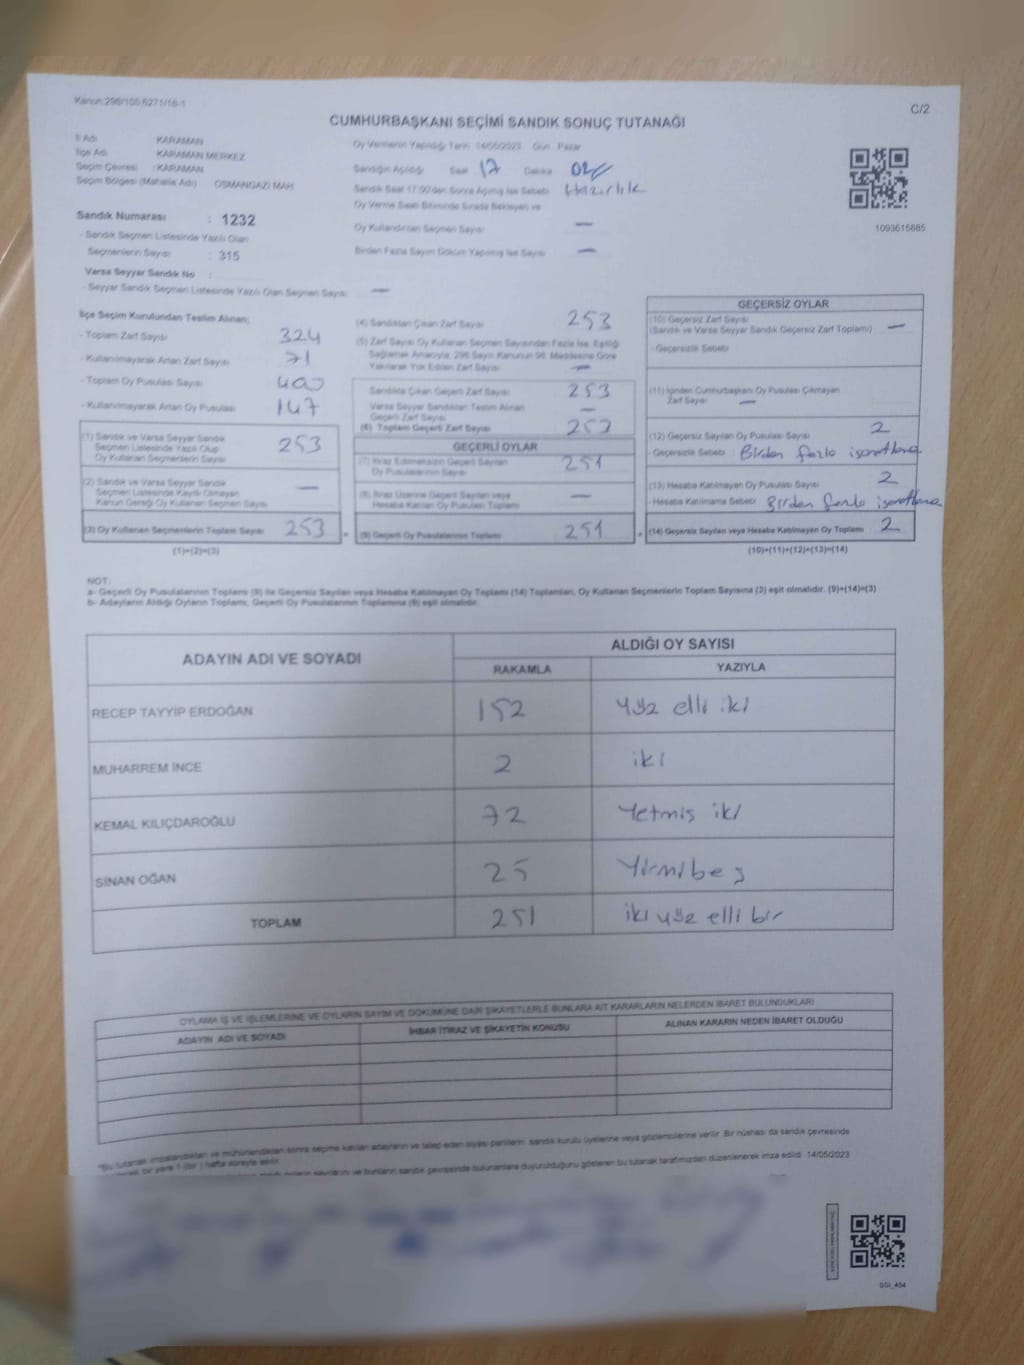 Kanun:298/105,6271/16-1
C/2
CUMHURBAŞKANI SEÇİMİ SANDIK SONUÇ TUTANAĞI
İl Adı : KARAMAN
İlçe Adı : KARAMAN MERKEZ
Seçim Çevresi : KARAMAN
Seçim Bölgesi (Mahalle Adı) : OSMANGAZİ MAH.
Oy Vermenin Yapıldığı Tarih : 14/05/2023 Gün : Pazar
Sandığın Açıldığı Saat 17 Dakika
Sandık Saat 17:00'den Sonra Açılmış İse Sebebi : Hazırlık
Oy Verme Saati Bitiminde Sırada Bekleyen ve
Oy Kullandırılan Seçmen Sayısı —
Birden Fazla Sayım Döküm Yapılmış İse Sayısı —
1093615885
Sandık Numarası : 1232
- Sandık Seçmen Listesinde Yazılı Olan
Seçmenlerin Sayısı : 315
Varsa Seyyar Sandık No :
- Seyyar Sandık Seçmen Listesinde Yazılı Olan Seçmen Sayısı: —
İlçe Seçim Kurulundan Teslim Alınan;
- Toplam Zarf Sayısı 324
- Kullanılmayarak Artan Zarf Sayısı 71
- Toplam Oy Pusulası Sayısı 400
- Kullanılmayarak Artan Oy Pusulası 147
(1) Sandık ve Varsa Seyyar Sandık
Seçmen Listesinde Yazılı Olup
Oy Kullanan Seçmenlerin Sayısı 253
(2) Sandık ve Varsa Seyyar Sandık
Seçmen Listesinde Kayıtlı Olmayan
Kanun Gereği Oy Kullanan Seçmen Sayısı —
(3) Oy Kullanan Seçmenlerin Toplam Sayısı 253
(1)+(2)=(3)
(4) Sandıktan Çıkan Zarf Sayısı 253
(5) Zarf Sayısı Oy Kullanan Seçmen Sayısından Fazla İse, Eşitliği
Sağlamak Amacıyla, 298 Sayılı Kanunun 98. Maddesine Göre
Yakılarak Yok Edilen Zarf Sayısı —
Sandıkta Çıkan Geçerli Zarf Sayısı 253
Varsa Seyyar Sandıktan Teslim Alınan
Geçerli Zarf Sayısı —
(6) Toplam Geçerli Zarf Sayısı 253
GEÇERLİ OYLAR
(7) İtiraz Edilmeksizin Geçerli Sayılan
Oy Pusulası Sayısı 251
(8) İtiraz Üzerine Geçerli Sayılan veya
Hesaba Katılan Oy Pusulası Toplamı —
(9) Geçerli Oy Pusulalarının Toplamı 251
GEÇERSİZ OYLAR
(10) Geçersiz Zarf Sayısı
(Sandık ve Varsa Seyyar Sandık Geçersiz Zarf Toplamı) —
- Geçersizlik Sebebi :
(11) İçinden Cumhurbaşkanı Oy Pusulası Çıkmayan
Zarf Sayısı —
(12) Geçersiz Sayılan Oy Pusulası Sayısı 2
- Geçersizlik Sebebi : Birden fazla isaretleme
(13) Hesaba Katılmayan Oy Pusulası Sayısı 2
- Hesaba Katılmama Sebebi : Birden fazla isaretleme
(14) Geçersiz Sayılan veya Hesaba Katılmayan Oy Toplamı 2
(10)+(11)+(12)+(13)=(14)
NOT:
a- Geçerli Oy Pusulalarının Toplamı (9) ile Geçersiz Sayılan veya Hesaba Katılmayan Oy Toplamı (14) Toplamları, Oy Kullanan Seçmenlerin Toplam Sayısına (3) eşit olmalıdır. (9)+(14)=(3)
b- Adayların Aldığı Oyların Toplamı, Geçerli Oy Pusulalarının Toplamına (9) eşit olmalıdır.
ADAYIN ADI VE SOYADI
ALDIĞI OY SAYISI
RAKAMLA YAZIYLA
RECEP TAYYİP ERDOĞAN 152 yüz elli iki
MUHARREM İNCE 2 iki
KEMAL KILIÇDAROĞLU 72 Yetmis iki
SİNAN OĞAN 25 Yirmibeş
TOPLAM 251 iki yüz elli bir
OYLAMA İŞ VE İŞLEMLERİNE VE OYLARIN SAYIM VE DÖKÜMÜNE DAİR ŞİKAYETLERLE BUNLARA AİT KARARLARIN NELERDEN İBARET BULUNDUKLARI
ADAYIN ADI VE SOYADI İHBAR İTİRAZ VE ŞİKAYETİN KONUSU ALINAN KARARIN NEDEN İBARET OLDUĞU
"Bu tutanak imzalandıktan ve mühürlendikten sonra seçime katılan adayların ve talep eden siyasi partilerin, sandık kurulu üyelerine veya gözlemcilerine verilir. Bir nüshası da sandık çevresinde
bir yere 1 (bir ) hafta süreyle asılır.
sandık çevresinde bulunanlara duyurulduğunu gösteren bu tutanak tarafımızdan düzenlenerek imza edildi. 14/05/2023
SSI_404